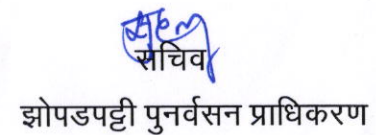 सचिव
झोपडपट्टी पुनर्वसन प्राधिकरण